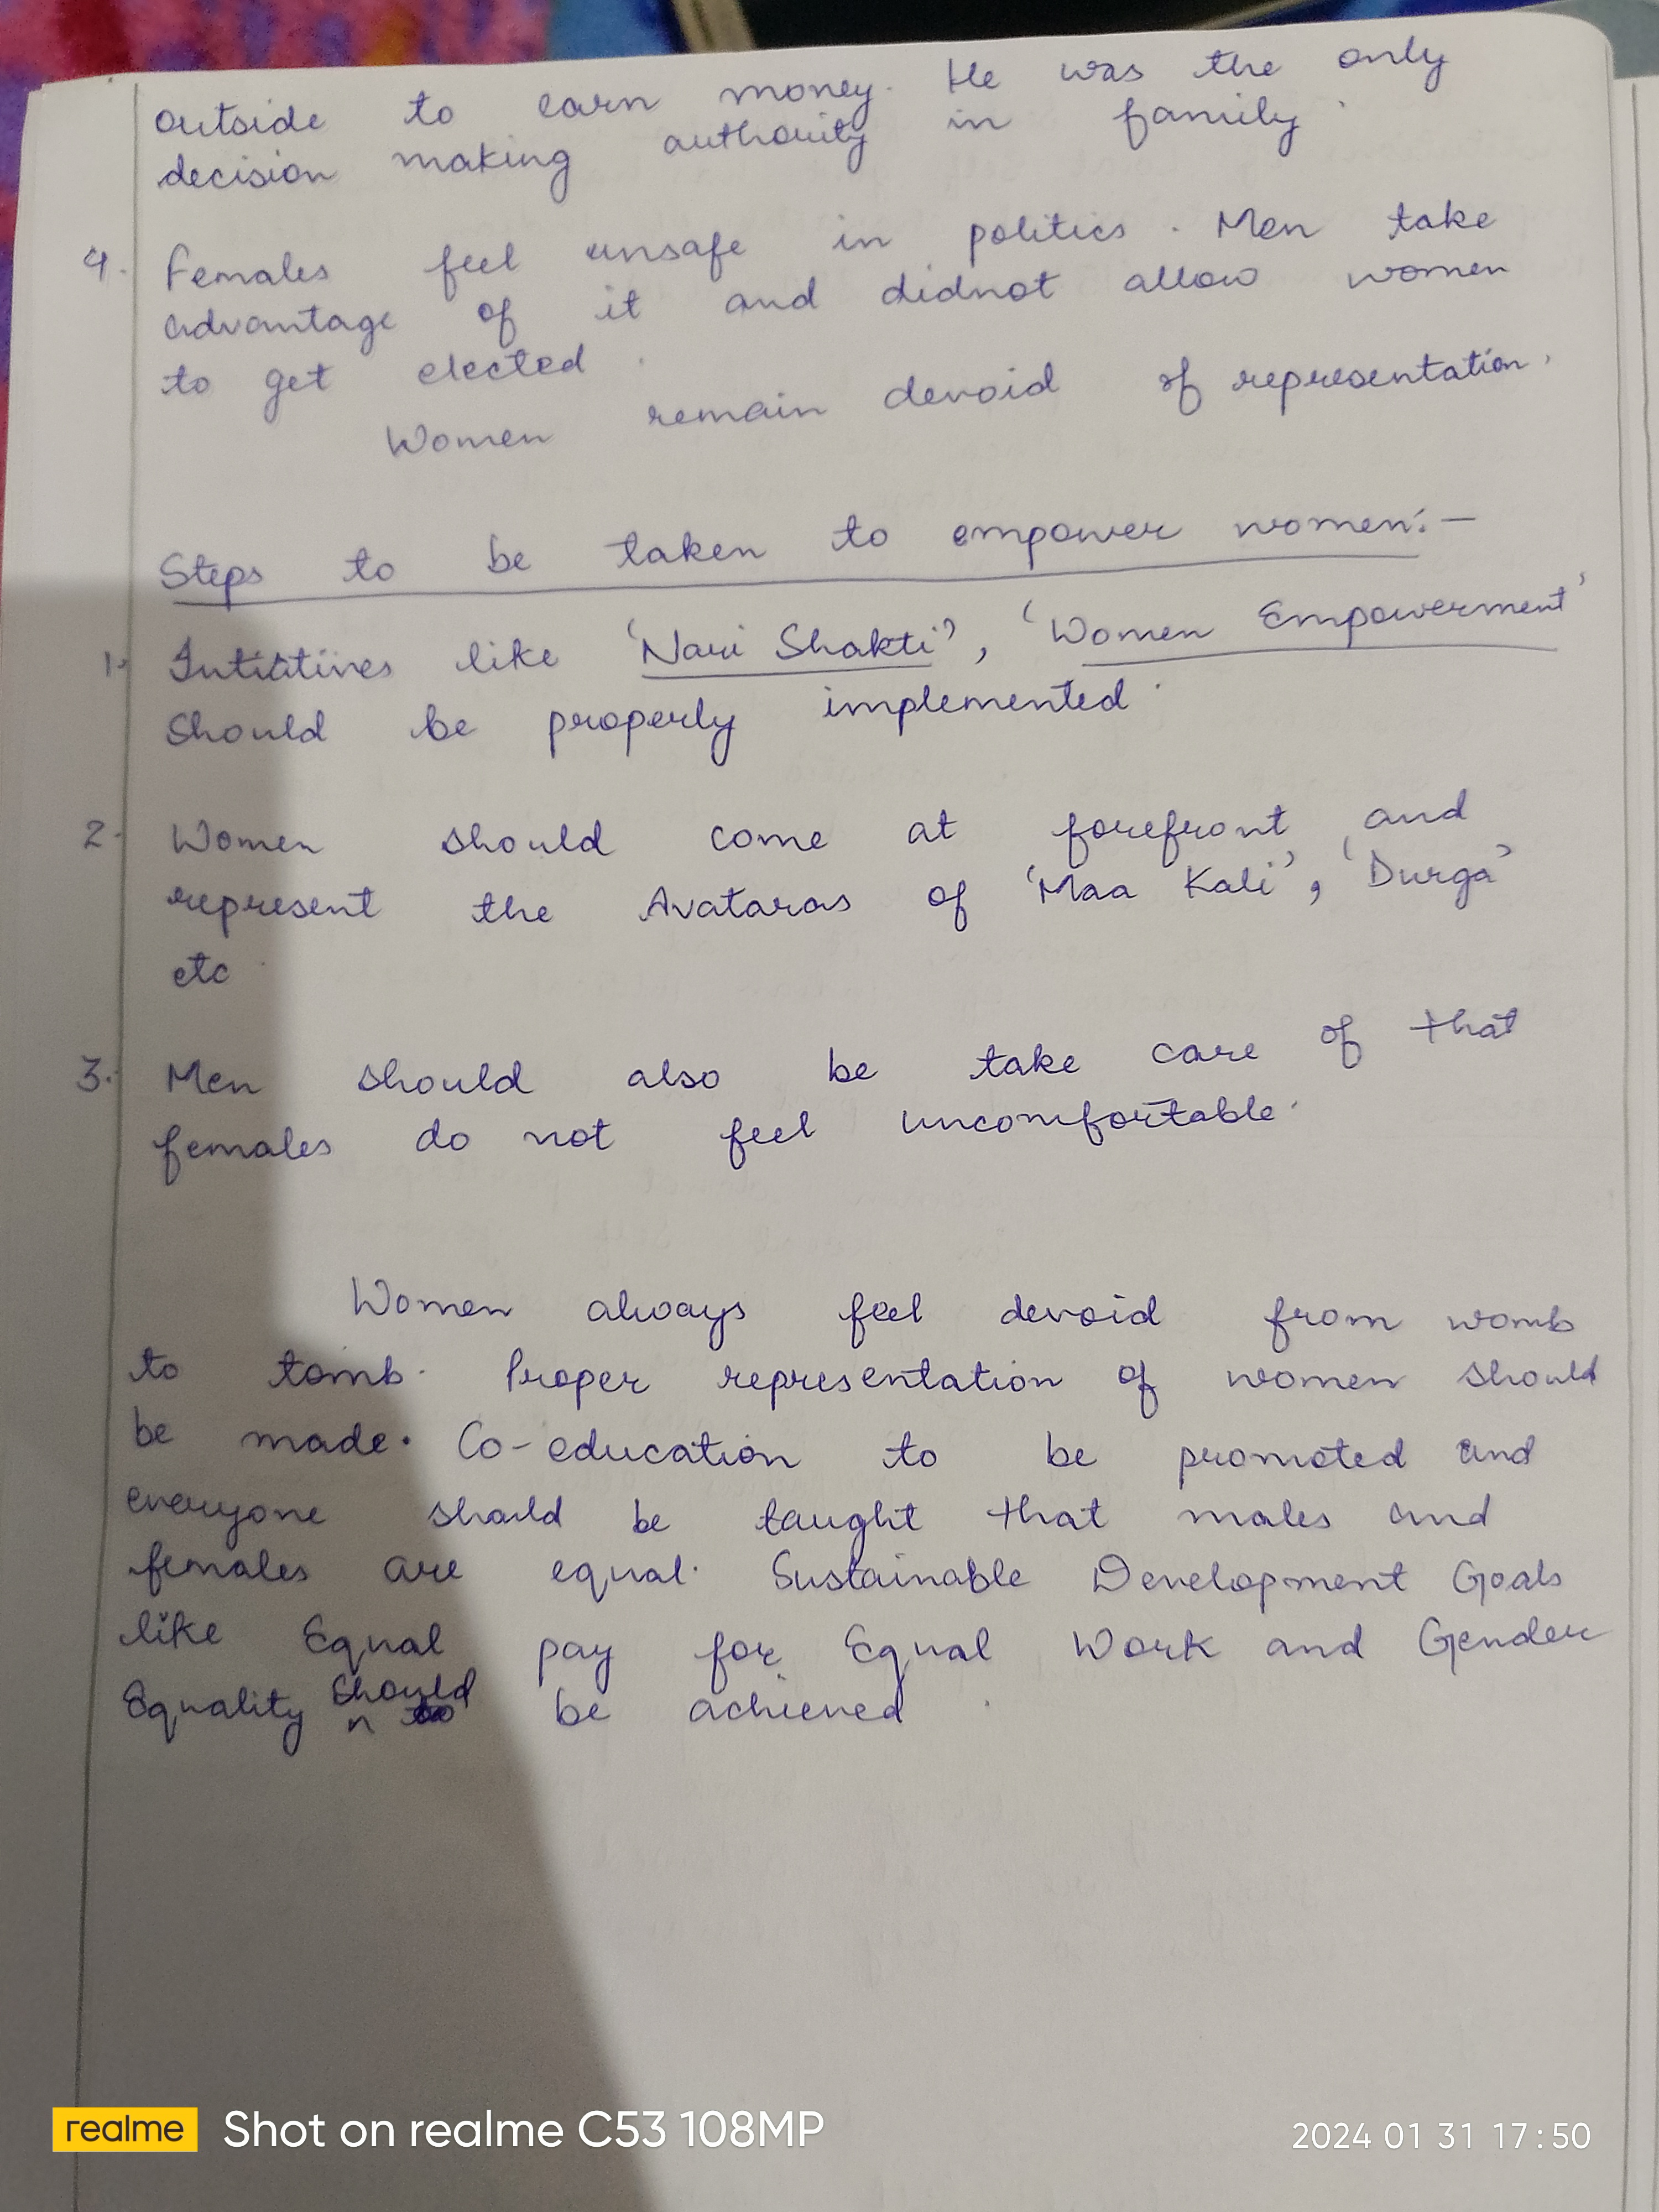 outside to earn money. He was the only
decision making authority in family.
4. Females feel unsafe in politics. Men take
advantage of it and didnot allow women
to get elected.
Women remain devoid of representation.
Steps to be taken to empower women:-
1. Intititives like 'Nari Shakti', 'Women Empowerment'
should be properly implemented.
2. Women should come at forefront and
represent the Avataras of 'Maa Kali', 'Durga'
etc.
3. Men should also be take care of that
females do not feel uncomfortable.
Women always feel devoid from womb
to tomb. Proper representation of women should
be made. Co-education to be promoted and
everyone should be taught that males and
females are equal. Sustainable Development Goals
like Equal pay for Equal Work and Gender
Equality should be achieved.
realme Shot on realme C53 108MP
2024 01 31 17:50